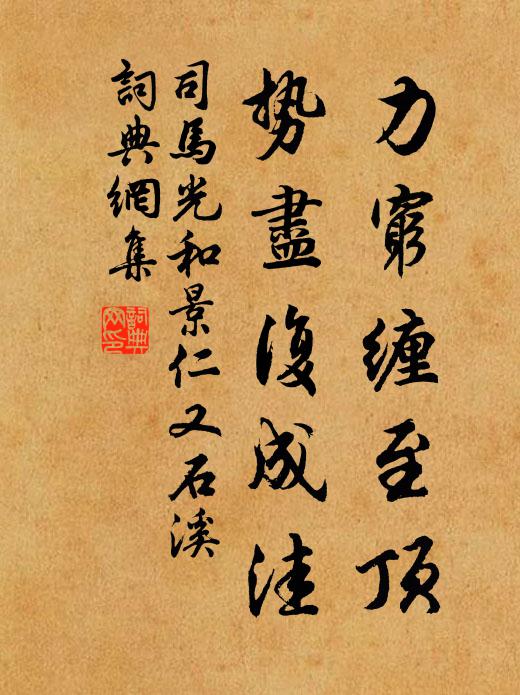 力窮纏至頂
勢盡復成洼
司馬光和景仁又石溪
詞典網集
詞典網印